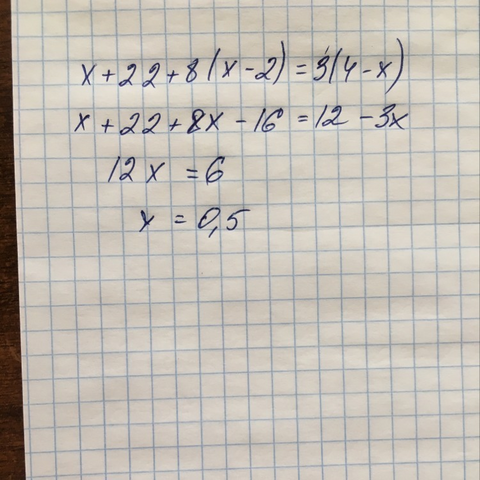 x + 22 + 8(x - 2) = 3(4 - x)
x + 22 + 8x - 16 = 12 - 3x
12x = 6
x = 0,5